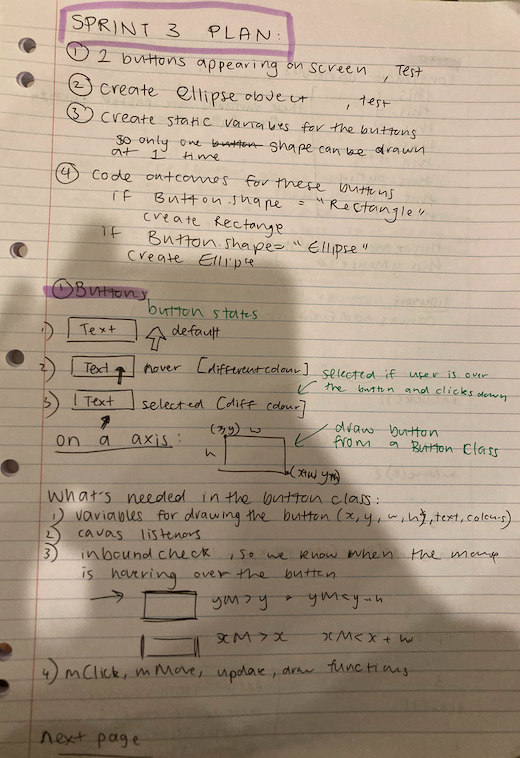 SPRINT 3 PLAN:
① 2 buttons appearing on screen , Test
② Create Ellipse object , test
③ Create static variables for the buttons
so only one button shape can be drawn
at 1 time
④ Code outcomes for these buttons
if Button.shape = "Rectangle"
create Rectange
if Button.shape = "Ellipse"
create Ellipse
① Buttons
button states
1) Text default
2) Text hover [different colour]
selected if user is over
the button and clicks down
3) Text selected [diff colour]
on a axis:
(x,y) w
h
(x+w y+h)
draw button
from a Button Class
What's needed in the button class:
1) variables for drawing the button (x, y, w, h, text, colours)
2) cavas listenors
3) inbound check, so we know when the mouse
is hovering over the button
yM > y yM < y + h
xM > x xM < x + w
4) mClick, mMove, update, draw functions
next page